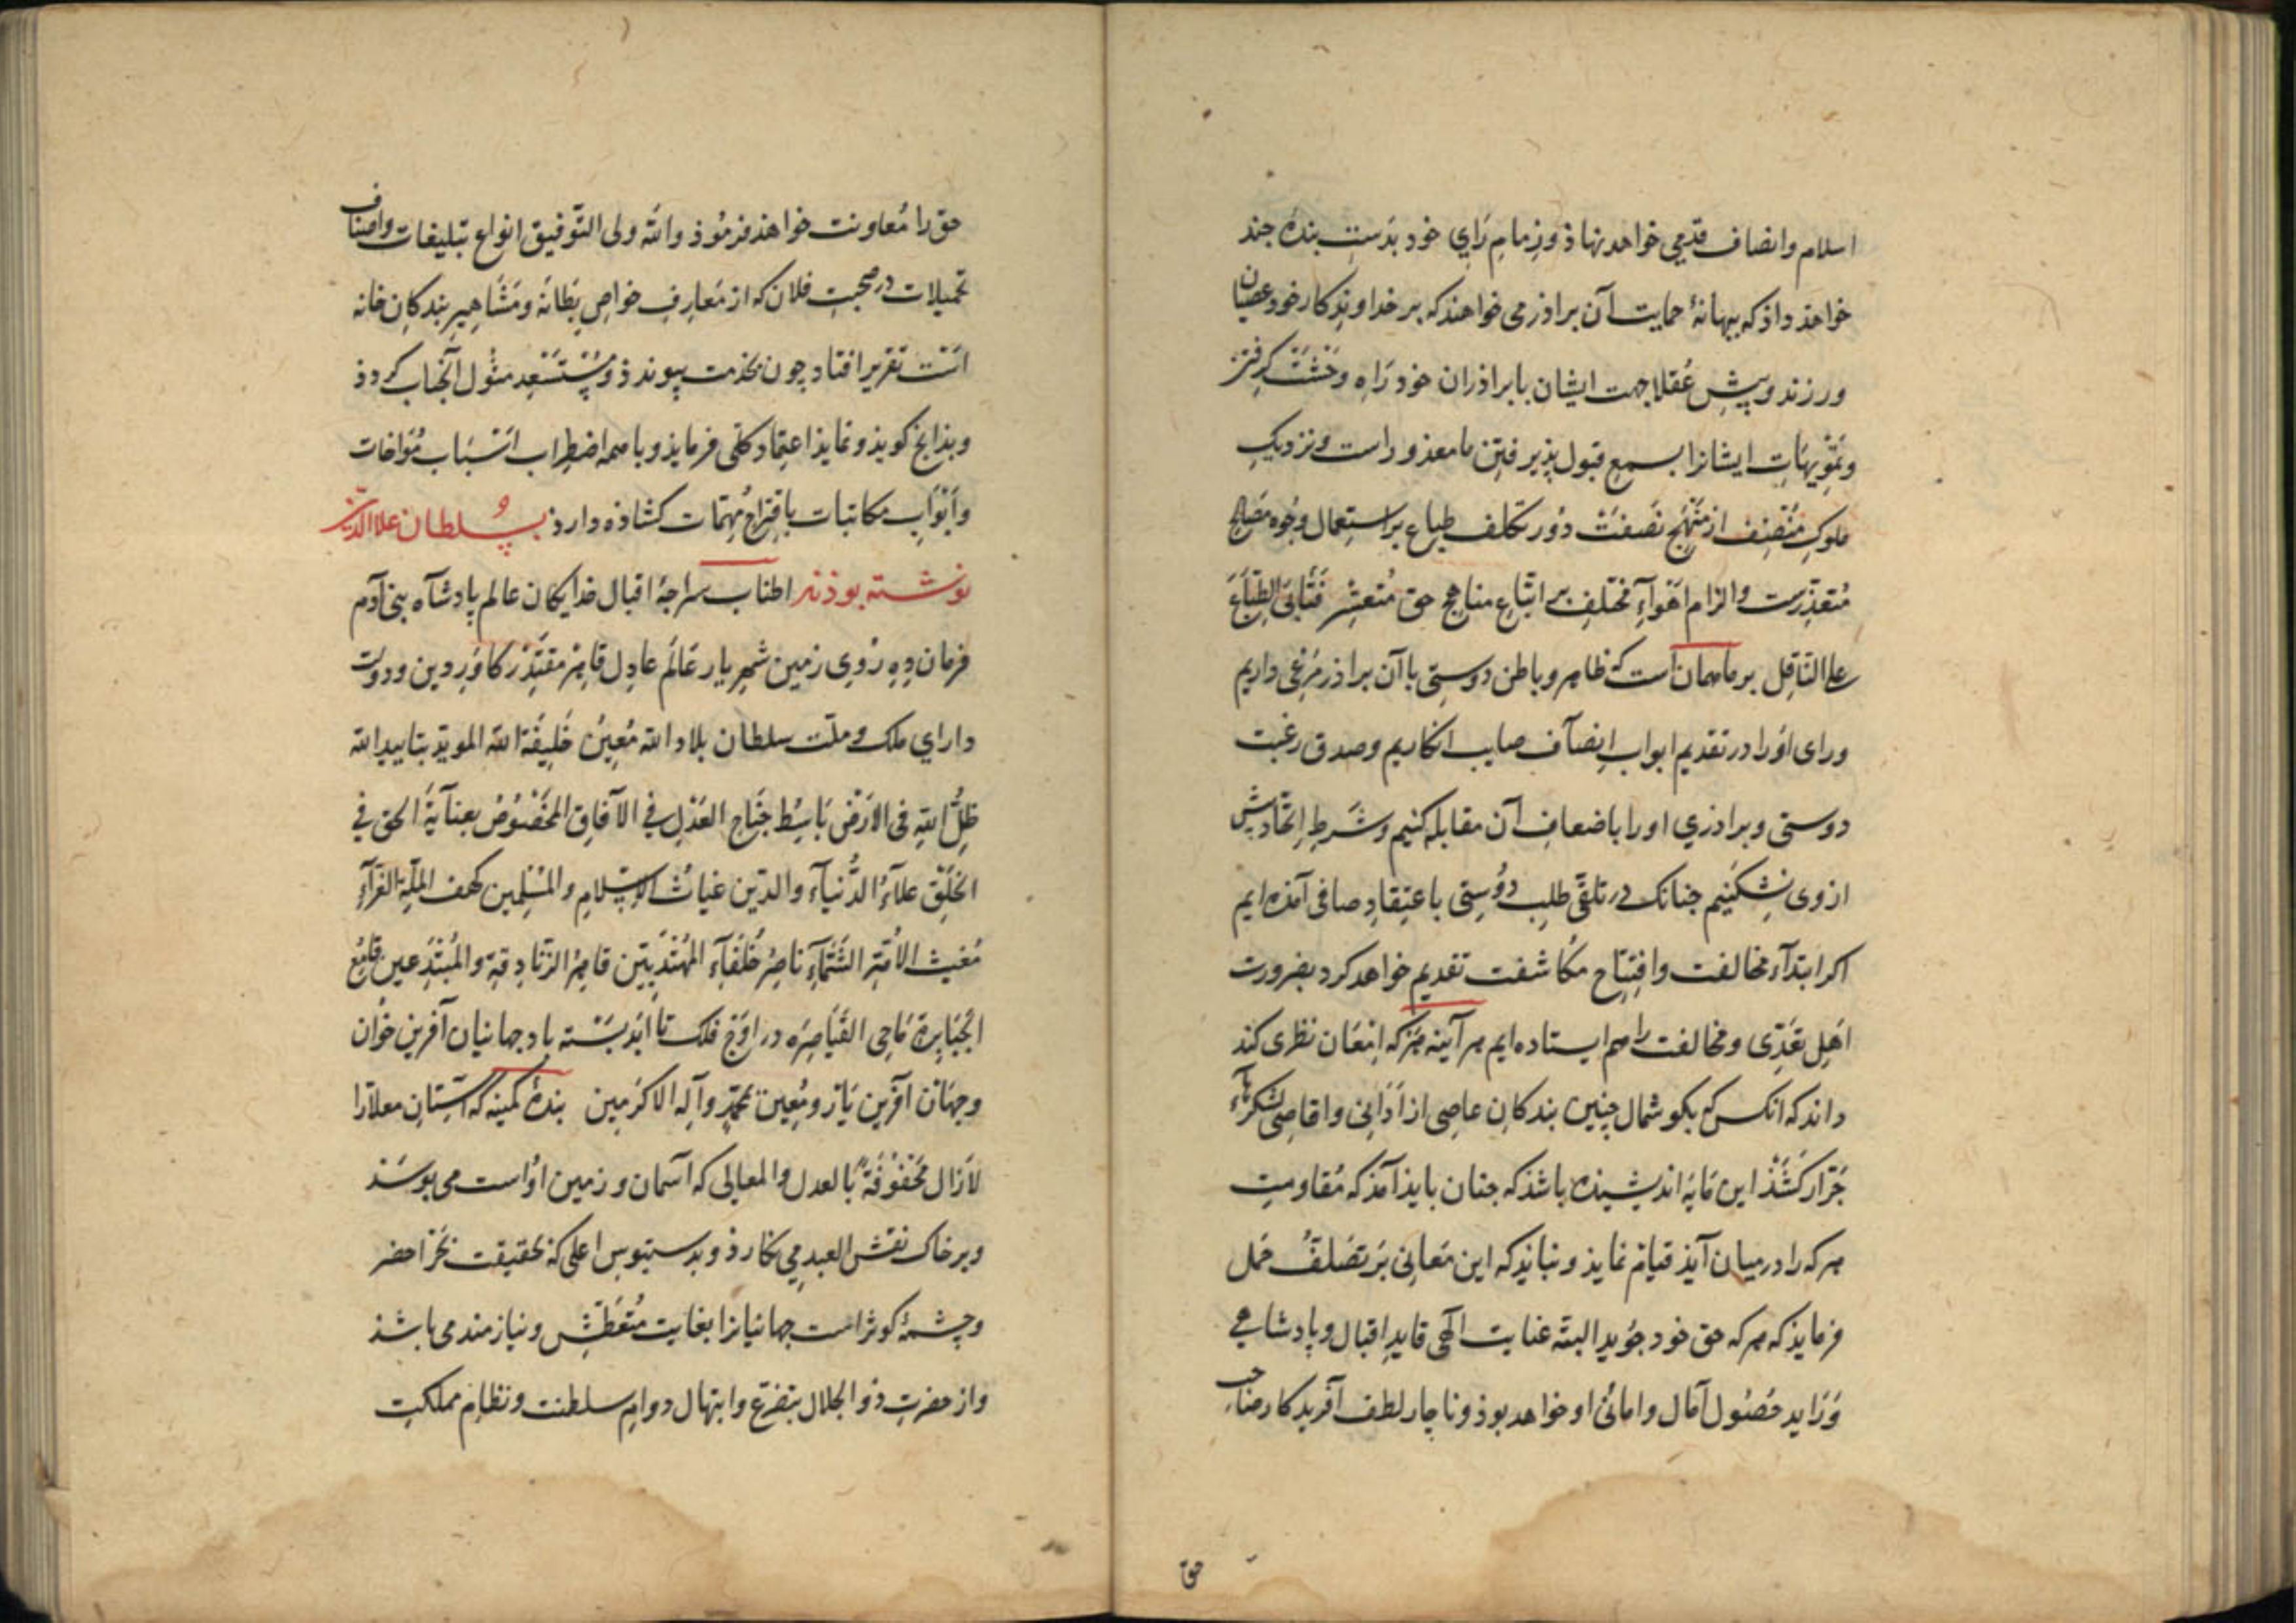 اسلام وانصاف قدمی خواهد نهاذ وزمام رای خود بدست بندۀ جند
خواهذ داذ که ببهانۀ حمایت آن براذر می خواهند که بر خداوندکار خود عصیان
ورزند و پیش عقلا جهت ایشان با براذران خود راه وحشت کرفتن
وتمویهات ایشانرا بسمع قبول پذیرفتن نامعذور است ونزدیک
ملوک منصف از منهج نصفت دور تکلف طباع بر استعمال وجوه مصالح
متعذرست والزام اهوآء مختلف بر اتباع مناهج حق متعسر فتأبی الطباع
علی الناقل بر ما همان است که ظاهر وباطن دوستی با آن براذر مرعی داریم
ورای اورا در تقدیم ابواب انصآف صایب انکاریم وصدق رغبت
دوستی وبراذری اورا باضعاف آن مقابله کنیم وشرط اتحاد پیش
ازوی نشکنیم جنانک در تلقی طلب دوستی باعتقاد صافی آمذه ایم
اکر ابتدآء مخالفت وافتتاح مکاشفت تقدیم خواهد کرد بضرورت
اهل تعدی ومخالفت را هم ایستاده ایم هر آینه هرکه امعان نظری کند
داند که انکس که بکوشمال چنین بندکان عاصی از ادانی واقاصی لشکرهآء
جرار کشذ این مایه اندیشیده باشذ که جنان بایذ آمذ که مقاومت
هرکه را درمیان آیذ قیام نمایذ ونبایذ که این معانی بر تصلف حمل
فرمایذ که هرکه حق خود جوید البته عنایت الهی قاید اقبال وپادشاهی
وراید حصول آمال وامانی او خواهد بوذ وناچار لطف آفریدکار صاحب
حق
حق را معاونت خواهذ فرموذ والله ولی التوفیق انواع تبلیغات واصناف
تحمیلات در صحبت فلان که از معارف خواص بطانه ومشاهیر بندکان خانه
است تقریر افتاد چون بخدمت پیوندذ ومستسعد مثول آنجناب کردذ
وبذانچ کویذ ونمایذ اعتماد کلی فرمایذ وباهمه اضطراب اسباب مؤاخات
وابواب مکاتبات باقتراح مهمات کشاذه دارذ بسلطان علاالدین
نوشته بوذند اطناب سراجۀ اقبال خدایکان عالم پادشآه بنی آدم
فرمان ده روی زمین شهریار عالم عادل قاهر مقتدر کاور دین ودولت
دارای ملک وملت سلطان بلاد الله معین خلیفة الله الموید بتایید الله
ظل الله فی الارض باسط جناح العدل فی الآفاق المخصوص بعنآیة الحق فی
الخلق علآء الدنیآء والدین غیاث الاسلام والمسلمین کهف الملة الغرآء
مغیث الامة الشمآء ناصر خلفآء المهتدیین قاهر الزنادقة والمبتدعین قامع
الجبابرة ماحی القیاصره در اوج فلک تا ابد بسته باد جهانیان آفرین خوان
وجهان آفرین یار ومعین بمحمد وآله الاکرمین بندۀ کمینه که آستان معلارا
لازال محفوفة بالعدل والمعالی که آسمان وزمین اواست می بوسذ
وبر خاک نقش العبد می نکارذ وبدستبوس اعلی که بحقیقت بحر اخضر
وچشمۀ کوثر است جهانیانرا بغایت متعطش ونیازمند می باشذ
واز حضرت ذو الجلال بتضرع وابتهال دوام سلطنت ونظام مملکت